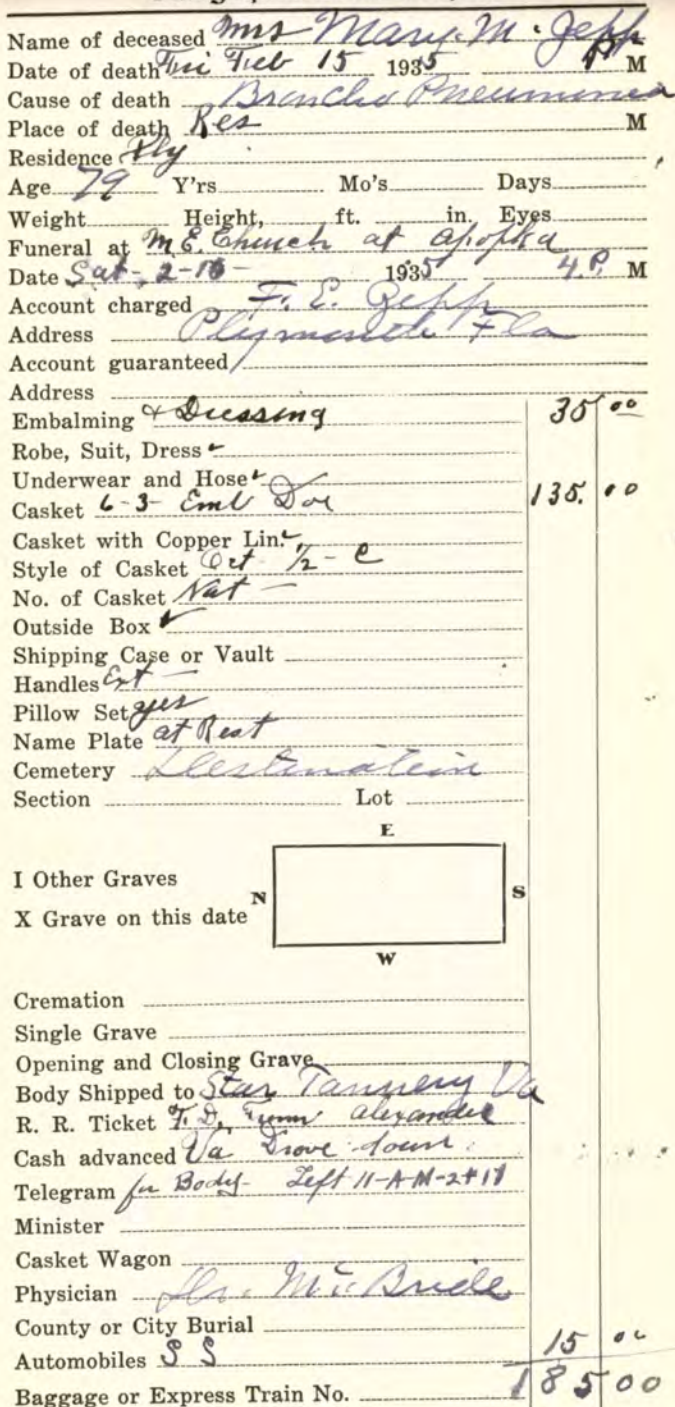 Name of deceased Mrs Mary. M. Jepp
Date of death Fri Feb 15 1935 P M
Cause of death Broncho Pneumonea
Place of death Res M
Residence Ply
Age 79 Y'rs Mo's Days
Weight Height, ft. in. Eyes
Funeral at M.E. Church at Apopka
Date Sat-, 2-16- 1935 4.P. M
Account charged F. E. Zepp
Address Plymouth Fla
Account guaranteed
Address
Embalming & Dressing 35 00
Robe, Suit, Dress
Underwear and Hose
Casket 6-3- Emb Doe 135. 00
Casket with Copper Lin.
Style of Casket Oct 1/2 - C
No. of Casket Nat -
Outside Box
Shipping Case or Vault
Handles Ext -
Pillow Set yes
Name Plate at Rest
Cemetery
Section Lot
E
I Other Graves
N S
X Grave on this date
W
Cremation
Single Grave
Opening and Closing Grave
Body Shipped to Star Tannery Va
R. R. Ticket F. D. from Alexander
Cash advanced Va Drove down
Telegram for Body- Left 11-AM-2+17
Minister
Casket Wagon
Physician Dr. McBride
County or City Burial
Automobiles S S 15 00
Baggage or Express Train No. 185 00